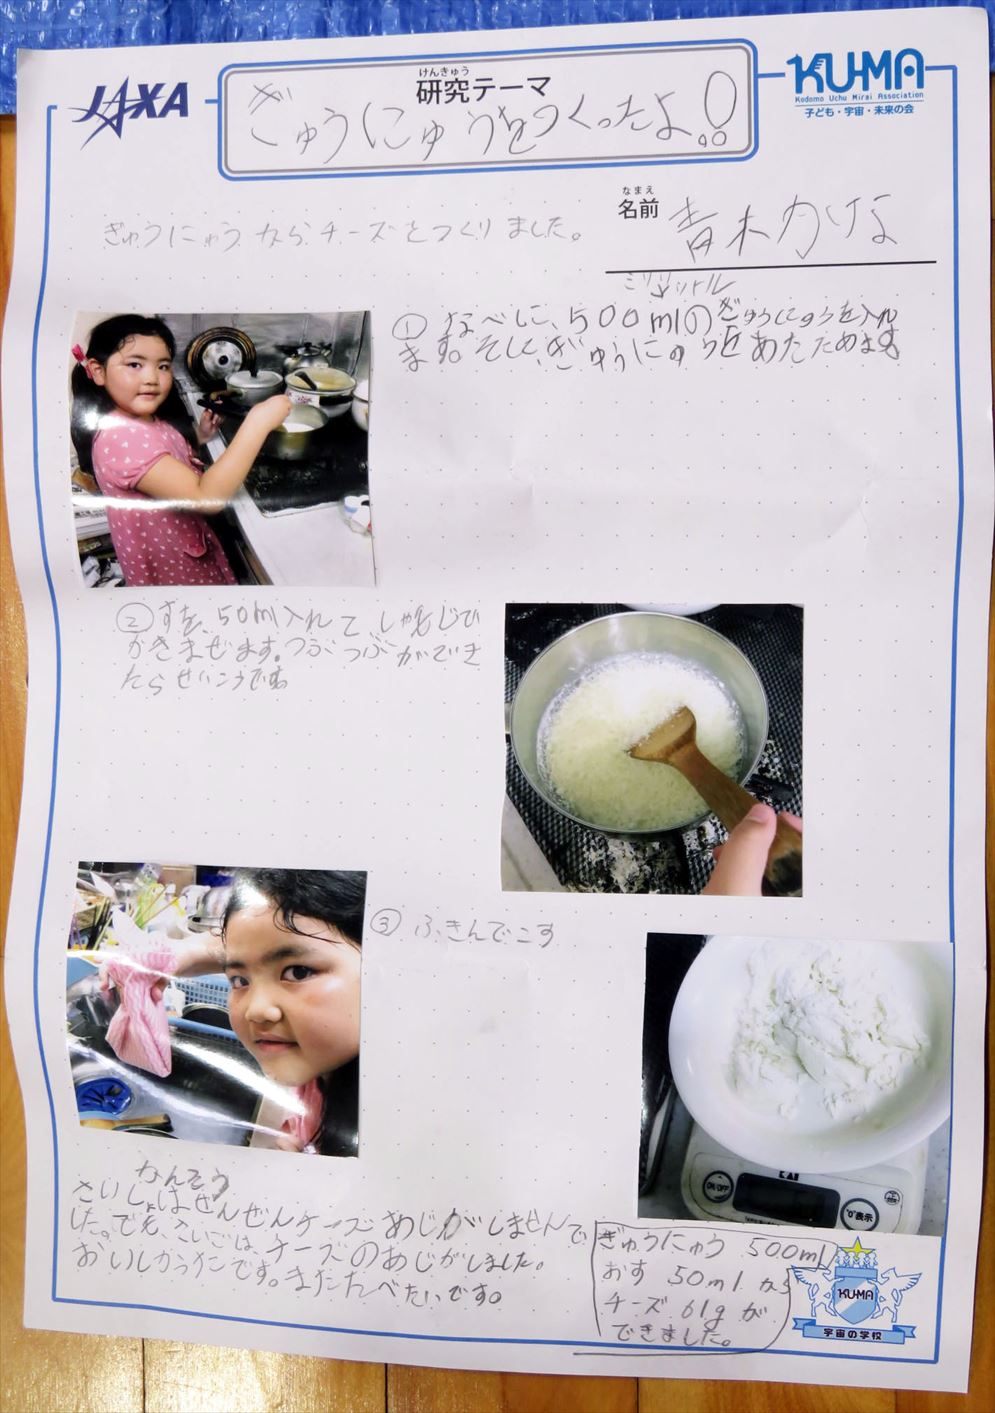 JAXA
けんきゅう
研究テーマ
ぎゅうにゅうをつくったよ!!
KU-MA
Kodomo Uchu Mirai Association
子ども・宇宙・未来の会
なまえ
名前
青木かな
ぎゅうにゅうからチーズをつくりました。
ミリリットル
① なべに、500mlのぎゅうにゅうを入れ
ます。そして、ぎゅうにゅうをあたためます。
② すを、50ml入れて しゃもじで
かきまぜます。つぶつぶができ
たらせいこうです。
③ ふきんでこす
KAI
ON/OFF
"0"表示
かんそう
さいしょはぜんぜんチーズあじがしませんで
した。でも、さいごは、チーズのあじがしました。
おいしかったです。またたべたいです。
ぎゅうにゅう 500ml
おす 50ml から
チーズ 61g が
できました。
KU-MA
宇宙の学校